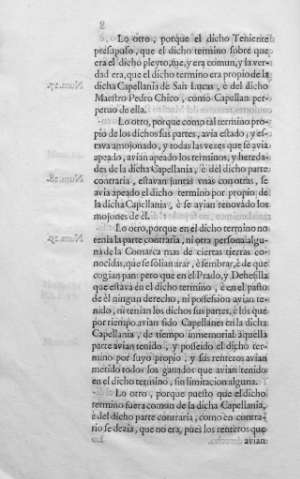 2
Lo otro, porque el dicho Teniente
presupuso, que el dicho termino sobre que
era el dicho pleyto, fue, y era comun, y la ver-
dad era, que el dicho termino era propio de la
dicha Capellania de San Lucas, è del dicho
Maestro Pedro Chico, como Capellan per-
petuo de ella.
Lo otro, porque como tal termino pro-
pio de los dichos sus partes, avia estado, y es-
tava amojonado, y todas las vezes que se avia
apeado, avian apeado los terminos, y hereda-
des de la dicha Capellania, è del dicho parte
contraria, estavan juntas vnas con otras, è se
avia apeado el dicho termino por propio de
la dicha Capellania, è se avian renovado los
mojones de èl.
Lo otro, porque en el dicho termino no
tenia la parte contraria, ni otra persona algu-
na de la Comarca mas de ciertas tierras co-
nocidas, que se solian arar, è sembrar, è de que
cogian pan: pero que en el Prado, y Dehesilla
que estava en el dicho termino, è en el pasto
de èl ningun derecho, ni possession avian te-
nido, ni tenian los dichos sus partes, è los que
por tiempo avian sido Capellanes en la dicha
Capellania, de tiempo inmemorial à aquella
parte avian tenido, y poseido el dicho ter-
mino por suyo propio, y sus renteros avian
metido todos los ganados que avian tenido
en el dicho termino, sin limitacion alguna.
Lo otro, porque puesto que el dicho
termino fuera comun de la dicha Capellania,
è del dicho parte contraria, como en contra-
rio se dezia, que no era, pues los renteros que
avian